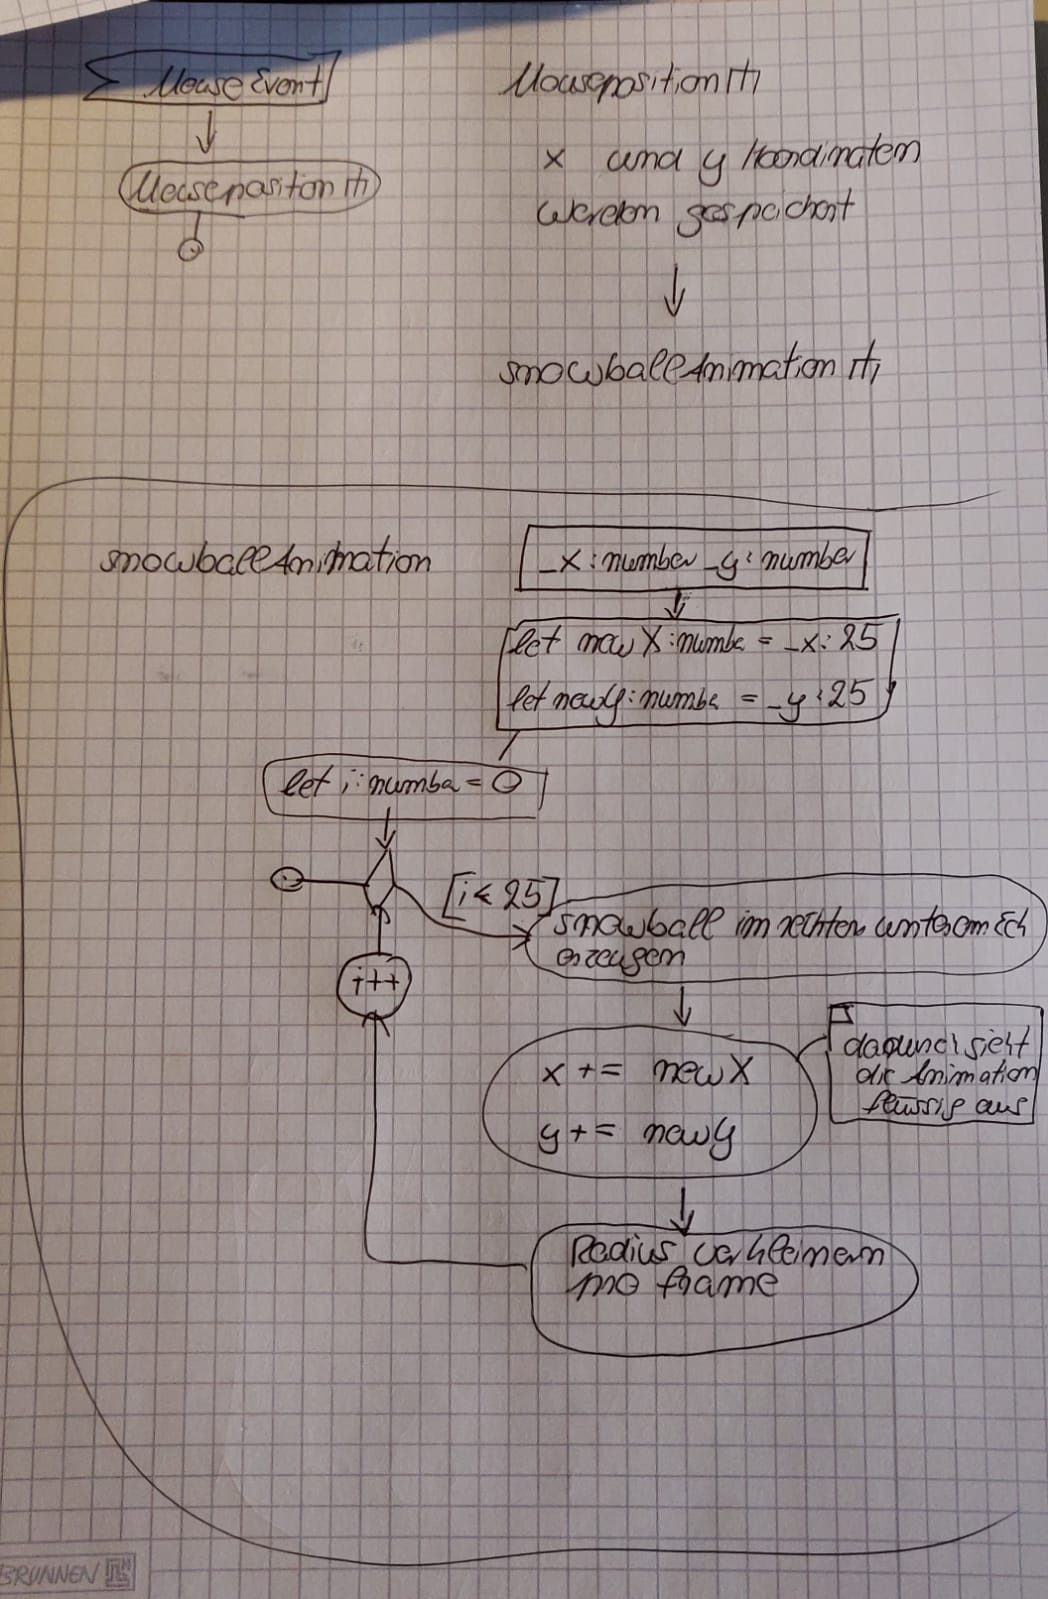 MouseEvent
Mouseposition
Mouseposition
x und y Koordinaten
werden gespeichert
snowballAnimation
snowballAnimation
_x: number _y: number
let newX: number = _x:25
let newY: number = _y:25
let i: number = 0
[i< 25]
snowball im rechten unteren Eck
erzeugen
i++
x += newX
y += newY
dadurch sieht
die Animation
flüssig aus
Radius verkleinern
pro frame
BRUNNEN